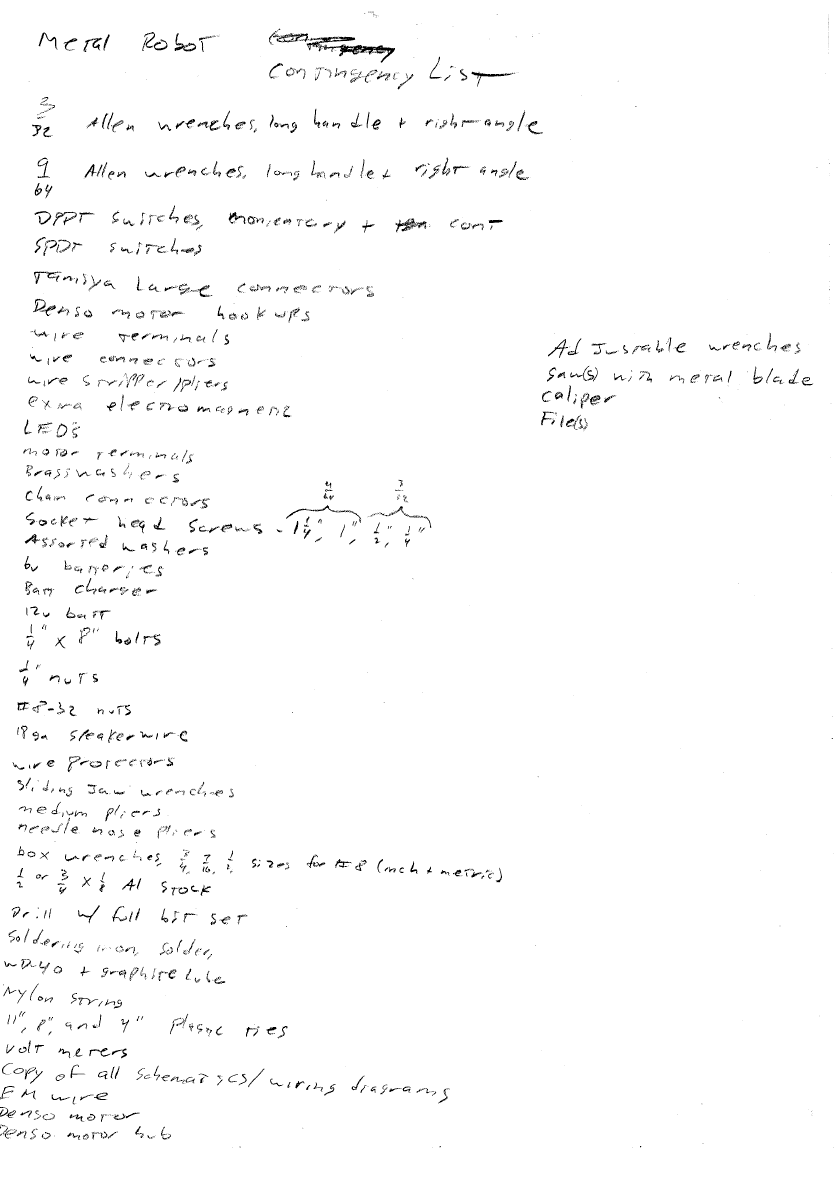 Metal Robot
Contingency List
3/32 Allen wrenches, long handle + right-angle
9/64 Allen wrenches, long handle + right angle
DPDT switches, momentary + cont
SPDT switches
Tamiya large connectors
Denso motor hookups
wire terminals
wire connectors
wire stripper/pliers
extra electromagnent
LEDs
motor terminals
Brass washers
Chain connectors
9/64 3/32
Socket head screws - 1 1/4", 1", 1/2", 1/4"
Assorted washers
6v batteries
Batt charger
12v batt
1/4" x 8" bolts
1/4" nuts
#8-32 nuts
18ga speaker wire
wire protectors
Sliding Jaw wrenches
medium pliers
needle nose pliers
box wrenches, 3/4, 7/16, 1/2, sizes for #8 (inch + metric)
1/2 or 3/4 x 1/8 Al stock
Drill w/ full bit set
Soldering iron, solder,
WD-40 + graphite lube
Nylon string
11", 8", and 4" plastic ties
Volt meters
Copy of all schematics/wiring diagrams
EM wire
Denso motor
Denso motor hub
Adjustable wrenches
Saw(s) with metal blade
caliper
File(s)